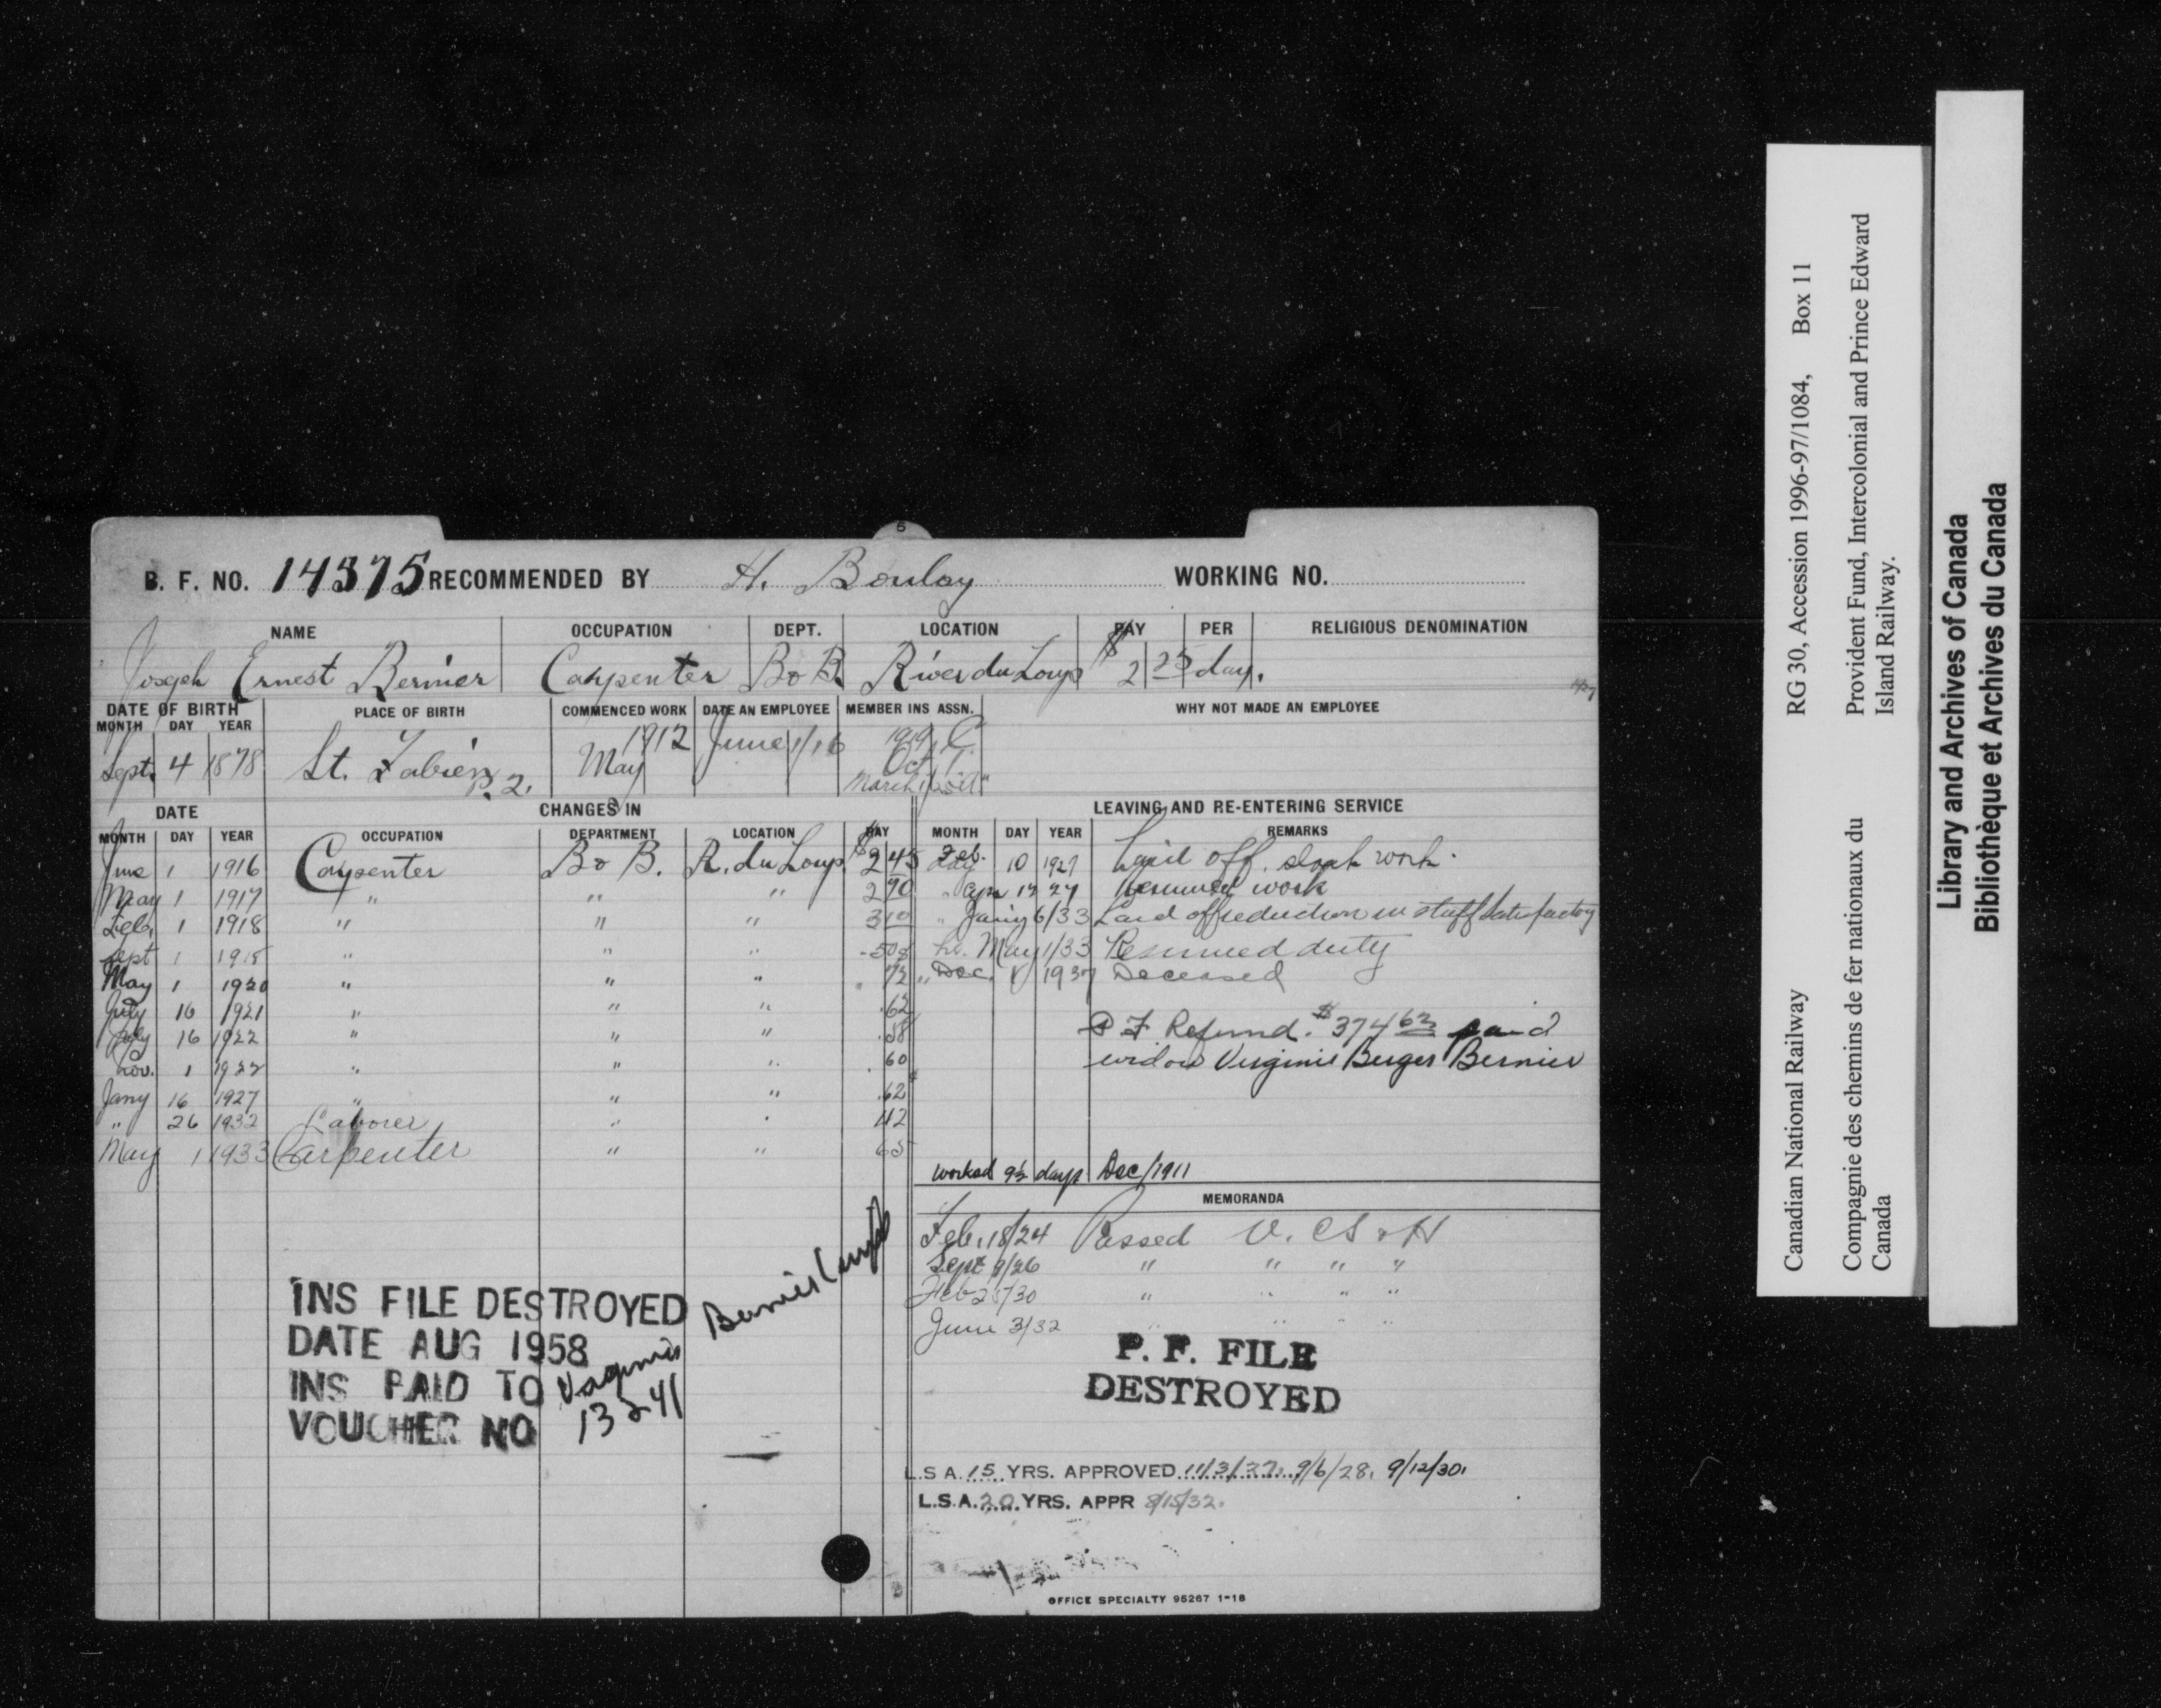 5
B. F. NO. 14375 RECOMMENDED BY H. Boulay WORKING NO.
NAME OCCUPATION DEPT. LOCATION PAY PER RELIGIOUS DENOMINATION
Joseph Ernest Bernier Carpenter B & B. River du Loup $ 2 25 day.
DATE OF BIRTH PLACE OF BIRTH COMMENCED WORK DATE AN EMPLOYEE MEMBER INS ASSN. WHY NOT MADE AN EMPLOYEE
MONTH DAY YEAR
Sept. 4 1878 St. Fabien P. 2. May 1912 June 1/16 1919 C
Oct T.
DATE CHANGES IN LEAVING AND RE-ENTERING SERVICE
MONTH DAY YEAR OCCUPATION DEPARTMENT LOCATION PAY MONTH DAY YEAR REMARKS
June 1 1916 Carpenter B & B. R. du Loup. $ 2 45 Feb. 10 1927 Laid off. slack work.
May 1 1917 " " " 2 90 Apr 12 27 Resumed work
Feb. 1 1918 " " " 3 10 " Jany 6/33 Laid off reduction in staff Satisfactory
Sept 1 1918 " " " .50 May 1/33 Resumed duty
May 1 1920 " " " .72 " Dec. 1 1937 Deceased
July 16 1921 " " " .62
July 16 1922 " " " .58
Nov. 1 1922 " " " .60
Jany 16 1927 " " " .62
" 26 1932 Laborer " " 42
May 1 1933 Carpenter " " 65
P F Refund. $374 63 paid
widow Virginie Berger Bernier
Worked 9½ days Dec/1911
MEMORANDA
Feb. 18/24 Passed V. CS & H
Sept 9/26 " " " "
Feb 25/30 " " " "
June 3/32 " " " "
INS FILE DESTROYED
DATE AUG 1958
INS PAID TO Virginie Bernier
VOUCHER NO 13241
P. F. FILE
DESTROYED
L.S.A. 15 YRS. APPROVED 11/3/27. 9/6/28. 9/12/30.
L.S.A. 20 YRS. APPR 8/15/32.
OFFICE SPECIALTY 95267 1-18
Canadian National Railway RG 30, Accession 1996-97/1084, Box 11
Compagnie des chemins de fer nationaux du Canada
Provident Fund, Intercolonial and Prince Edward Island Railway.
Library and Archives of Canada
Bibliothèque et Archives du Canada